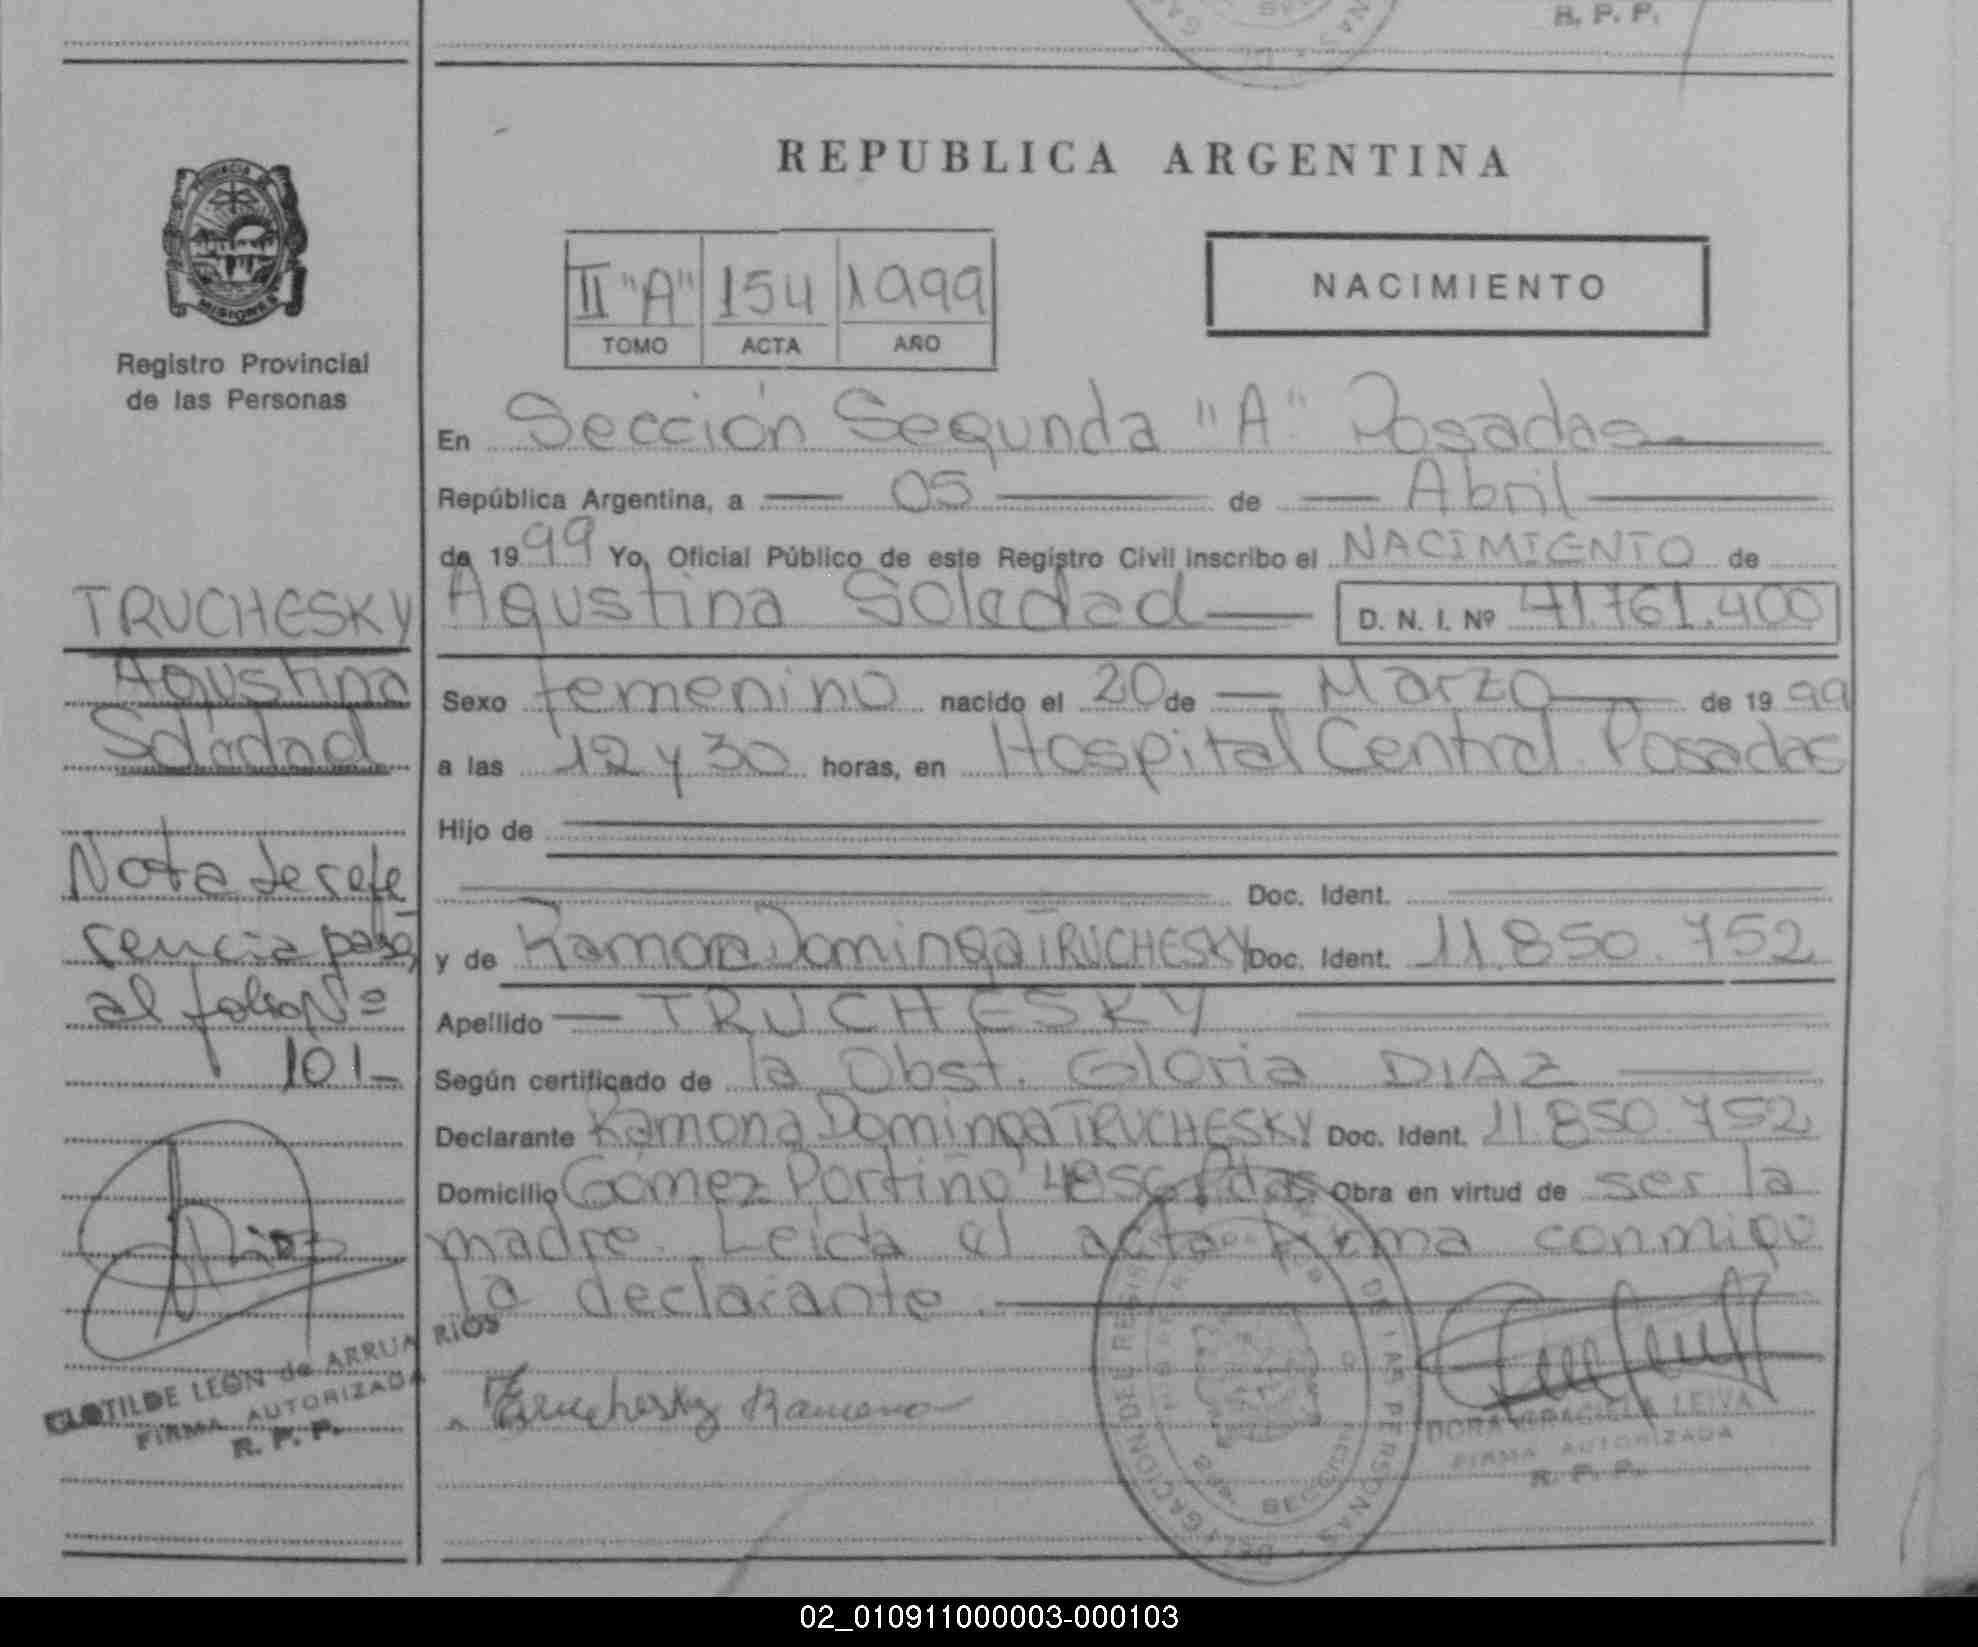 R. P. P.
REPUBLICA ARGENTINA
PROVINCIA DE
MISIONES
Registro Provincial
de las Personas
II "A" 154 1999
TOMO ACTA AÑO
NACIMIENTO
En Sección Segunda "A" Posadas
República Argentina, a 05 de Abril
de 1999 Yo, Oficial Público de este Registro Civil inscribo el NACIMIENTO de
Agustina Soledad D. N. I. Nº 41.761.400
Sexo femenino nacido el 20 de Marzo de 1999
a las 12 y 30 horas, en Hospital Central Posadas
Hijo de
Doc. Ident.
y de Ramona Dominga TRUCHESKY Doc. Ident. 11.850.752
Apellido TRUCHESKY
Según certificado de la Obst. Gloria DIAZ
Declarante Ramona Dominga TRUCHESKY Doc. Ident. 11.850.752
Domicilio Gómez Portiño 4856 Pdas Obra en virtud de ser la
madre. Leída el acta firma conmigo
la declarante.
Truchesky Ramona
DORA GRACIELA LEIVA
FIRMA AUTORIZADA
R. P. P.
TRUCHESKY
Agustina
Soledad
Nota de refe
rencia pasa
al folio Nº
101-
CLOTILDE LEON de ARRUA RIOS
FIRMA AUTORIZADA
R. P. P.
02_010911000003-000103